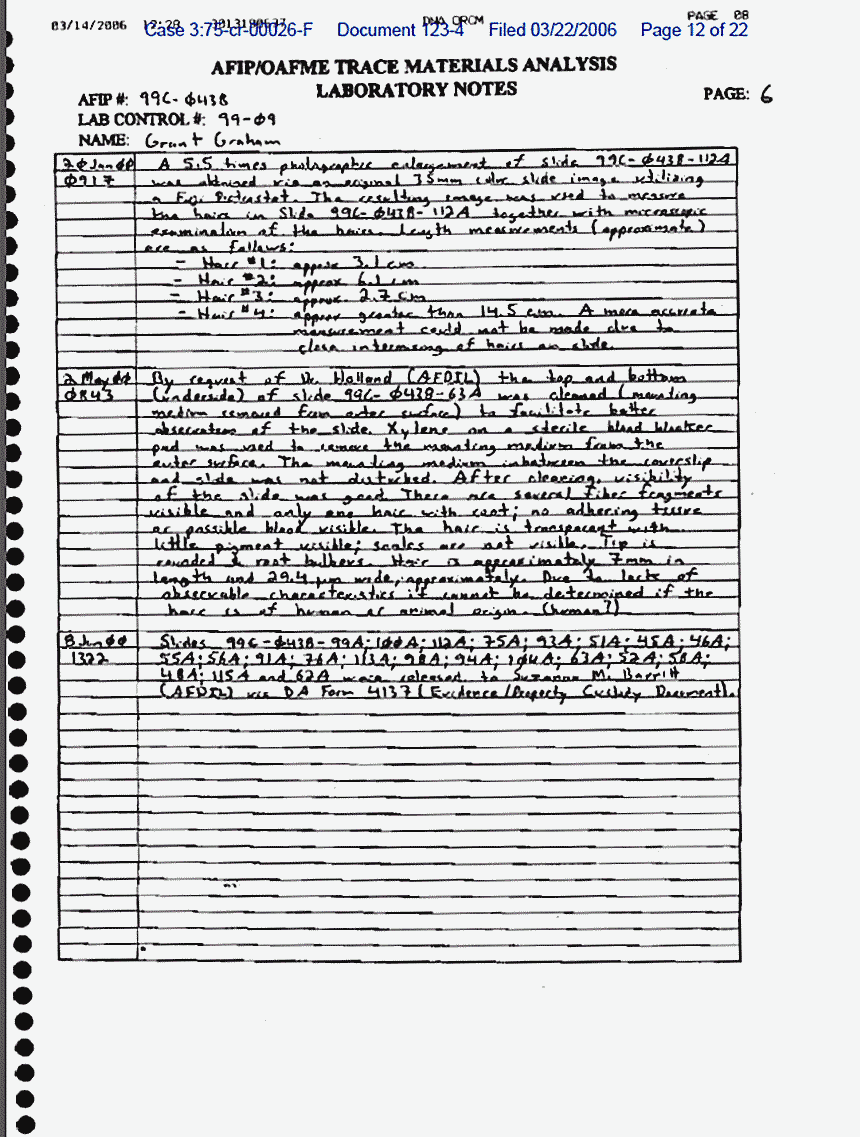 03/14/2006 12:28 3013190627 DNA ORCM PAGE 08
Case 3:75-cr-00026-F Document 123-4 Filed 03/22/2006 Page 12 of 22
AFIP/OAFME TRACE MATERIALS ANALYSIS
LABORATORY NOTES
PAGE: 6
AFIP #: 99C-Ø438
LAB CONTROL #: 99-Ø9
NAME: Grant Graham
2Ø Jan ØØ A 5.5 times photographic enlargement of slide 99C-Ø438-112A
Ø917 was obtained via an original 35mm color slide image utilizing
a Fuji Pictrostat. The resulting image was used to measure
the hairs in Slide 99C-Ø438-112A together with microscopic
examination of the hairs. Length measurements (approximate)
are as follows:
- Hair #1: approx 3.1 cm
- Hair #2: approx 6.1 cm
- Hair #3: approx. 2.7 cm
- Hair #4: approx greater than 14.5 cm. A more accurate
measurement could not be made due to
close intermixing of hairs on slide.
2 May ØØ By request of Dr. Holland (AFDIL) the top and bottom
Ø843 (underside) of slide 99C-Ø438-63A was cleaned (mounting
medium removed from outer surface) to facilitate better
observation of the slide. Xylene on a sterile blood blotter
pad was used to remove the mounting medium from the
outer surface. The mounting medium inbetween the coverslip
and slide was not disturbed. After cleaning, visibility
of the slide was good. There are several fiber fragments
visible and only one hair with root; no adhering tissue
or possible blood visible. The hair is transparent with
little pigment visible; scales are not visible. Tip is
rounded & root bulbous. Hair is approximately 7mm in
length and 29.4 µm wide, approximately. Due to lack of
observable characteristics it cannot be determined if the
hair is of human or animal origin. (human?)
8 Jun ØØ Slides 99C-Ø438-99A; 1ØØA; 112A; 75A; 93A; 51A; 45A; 46A;
1322 55A; 56A; 91A; 76A; 113A; 98A; 94A; 1Ø4A; 63A; 52A; 58A;
48A; 115A and 62A were released to Suzanne M. Barritt
(AFDIL) via DA Form 4137 (Evidence/Property Custody Document).